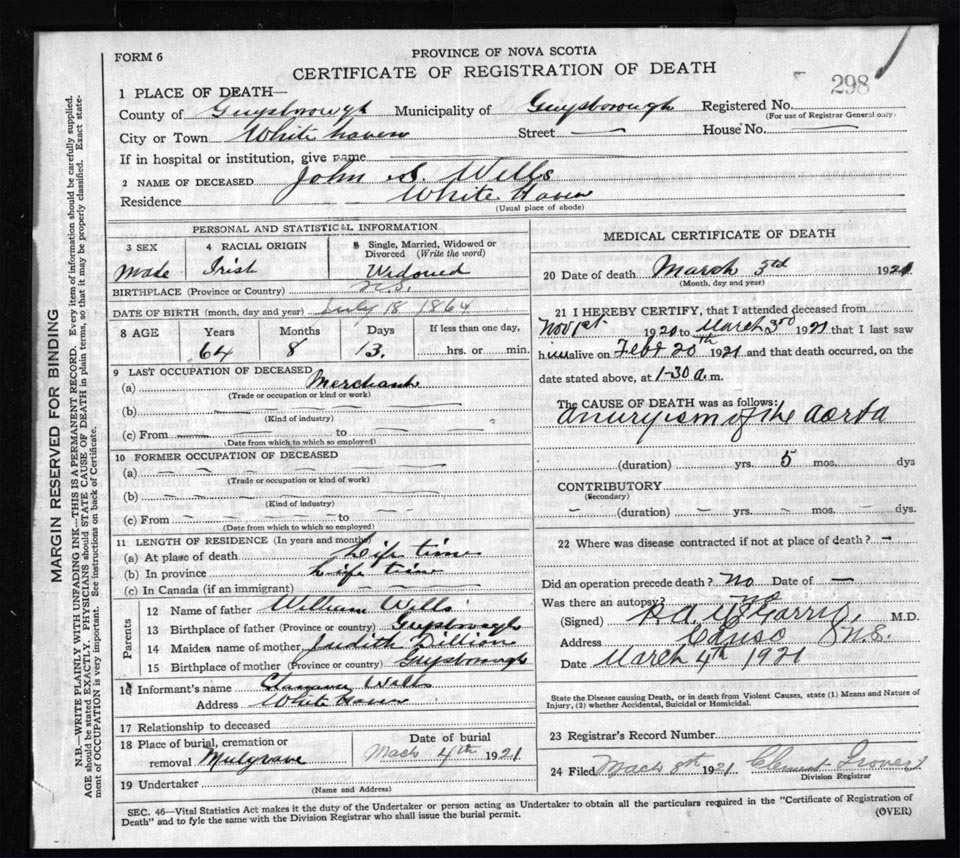 FORM 6
PROVINCE OF NOVA SCOTIA
CERTIFICATE OF REGISTRATION OF DEATH
298
1 PLACE OF DEATH—
County of Guysborough Municipality of Guysborough Registered No.
(For use of Registrar General only)
City or Town White haven Street — House No. —
If in hospital or institution, give name
2 NAME OF DECEASED John S. Wells
Residence White Haven
(Usual place of abode)
PERSONAL AND STATISTICAL INFORMATION
3 SEX 4 RACIAL ORIGIN 5 Single, Married, Widowed or Divorced (Write the word)
Irish
BIRTHPLACE (Province or Country) N.S.
DATE OF BIRTH (month, day and year) July 18 1864
8 AGE Years Months Days If less than one day,
64 8 13. hrs. or min.
9 LAST OCCUPATION OF DECEASED
(a) Merchant
(Trade or occupation or kind or work)
(b)
(Kind of industry)
(c) From to
(Date from which to which so employed)
10 FORMER OCCUPATION OF DECEASED
(a)
(Trade or occupation or kind of work)
(b)
(Kind of industry)
(c) From to
(Date from which to which so employed)
11 LENGTH OF RESIDENCE (In years and months)
(a) At place of death Life time
(b) In province Life time
(c) In Canada (if an immigrant)
Parents
12 Name of father William Wells
13 Birthplace of father (Province or country) Guysborough
14 Maiden name of mother Judith Dillion
15 Birthplace of mother (Province or country) Guysborough
16 Informant's name Wells
Address White Haven
17 Relationship to deceased
18 Place of burial, cremation or Date of burial
removal Mulgrave Mach 4th 1921
19 Undertaker
(Name and Address)
MEDICAL CERTIFICATE OF DEATH
20 Date of death March 3rd 1921
(Month, day and year)
21 I HEREBY CERTIFY, that I attended deceased from
Nov 1st 1920 to March 3rd 1921 that I last saw
him alive on Feb 20th 1921 and that death occurred, on the
date stated above, at 1-30 a.m.
The CAUSE OF DEATH was as follows:
Aneurysism of the aorta
(duration) yrs. 5 mos. dys
CONTRIBUTORY
(Secondary)
— (duration) — yrs. — mos. — dys.
22 Where was disease contracted if not at place of death? —
Did an operation precede death? No Date of —
Was there an autopsy? no
(Signed) M.D.
Address Canso N.S.
Date March 4th 1921
State the Disease causing Death, or in death from Violent Causes, state (1) Means and Nature of
Injury, (2) whether Accidental, Suicidal or Homicidal.
23 Registrar's Record Number
24 Filed Mach 8th 1921
Division Registrar
SEC. 46—Vital Statistics Act makes it the duty of the Undertaker or person acting as Undertaker to obtain all the particulars required in the "Certificate of Registration of
Death" and to fyle the same with the Division Registrar who shall issue the burial permit. (OVER)
MARGIN RESERVED FOR BINDING
N.B.—WRITE PLAINLY WITH UNFADING INK—THIS IS A PERMANENT RECORD. Every item of information should be carefully supplied.
AGE should be stated EXACTLY. PHYSICIANS should STATE CAUSE OF DEATH in plain terms, so that it may be properly classified. Exact state-
ment of OCCUPATION is very important. See instructions on back of Certificate.